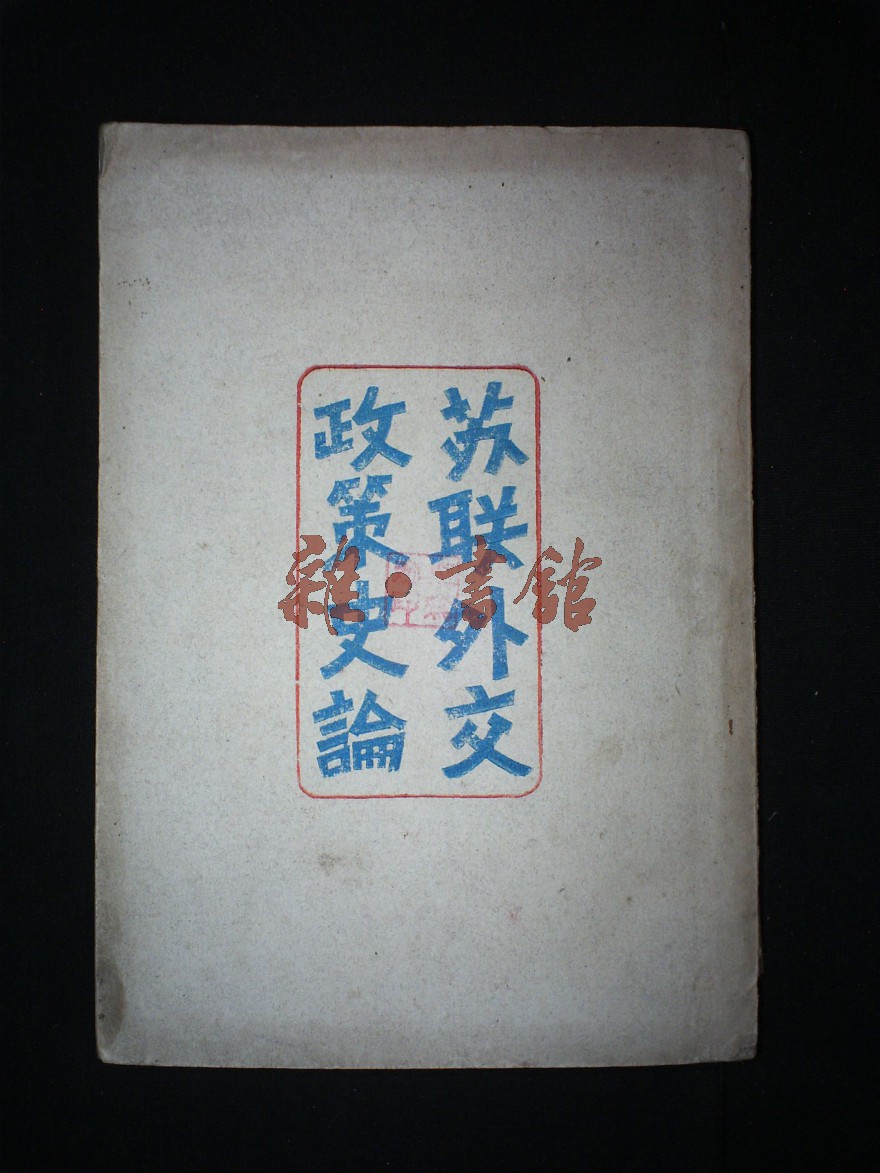 苏联外交
政策史論
雜·書館